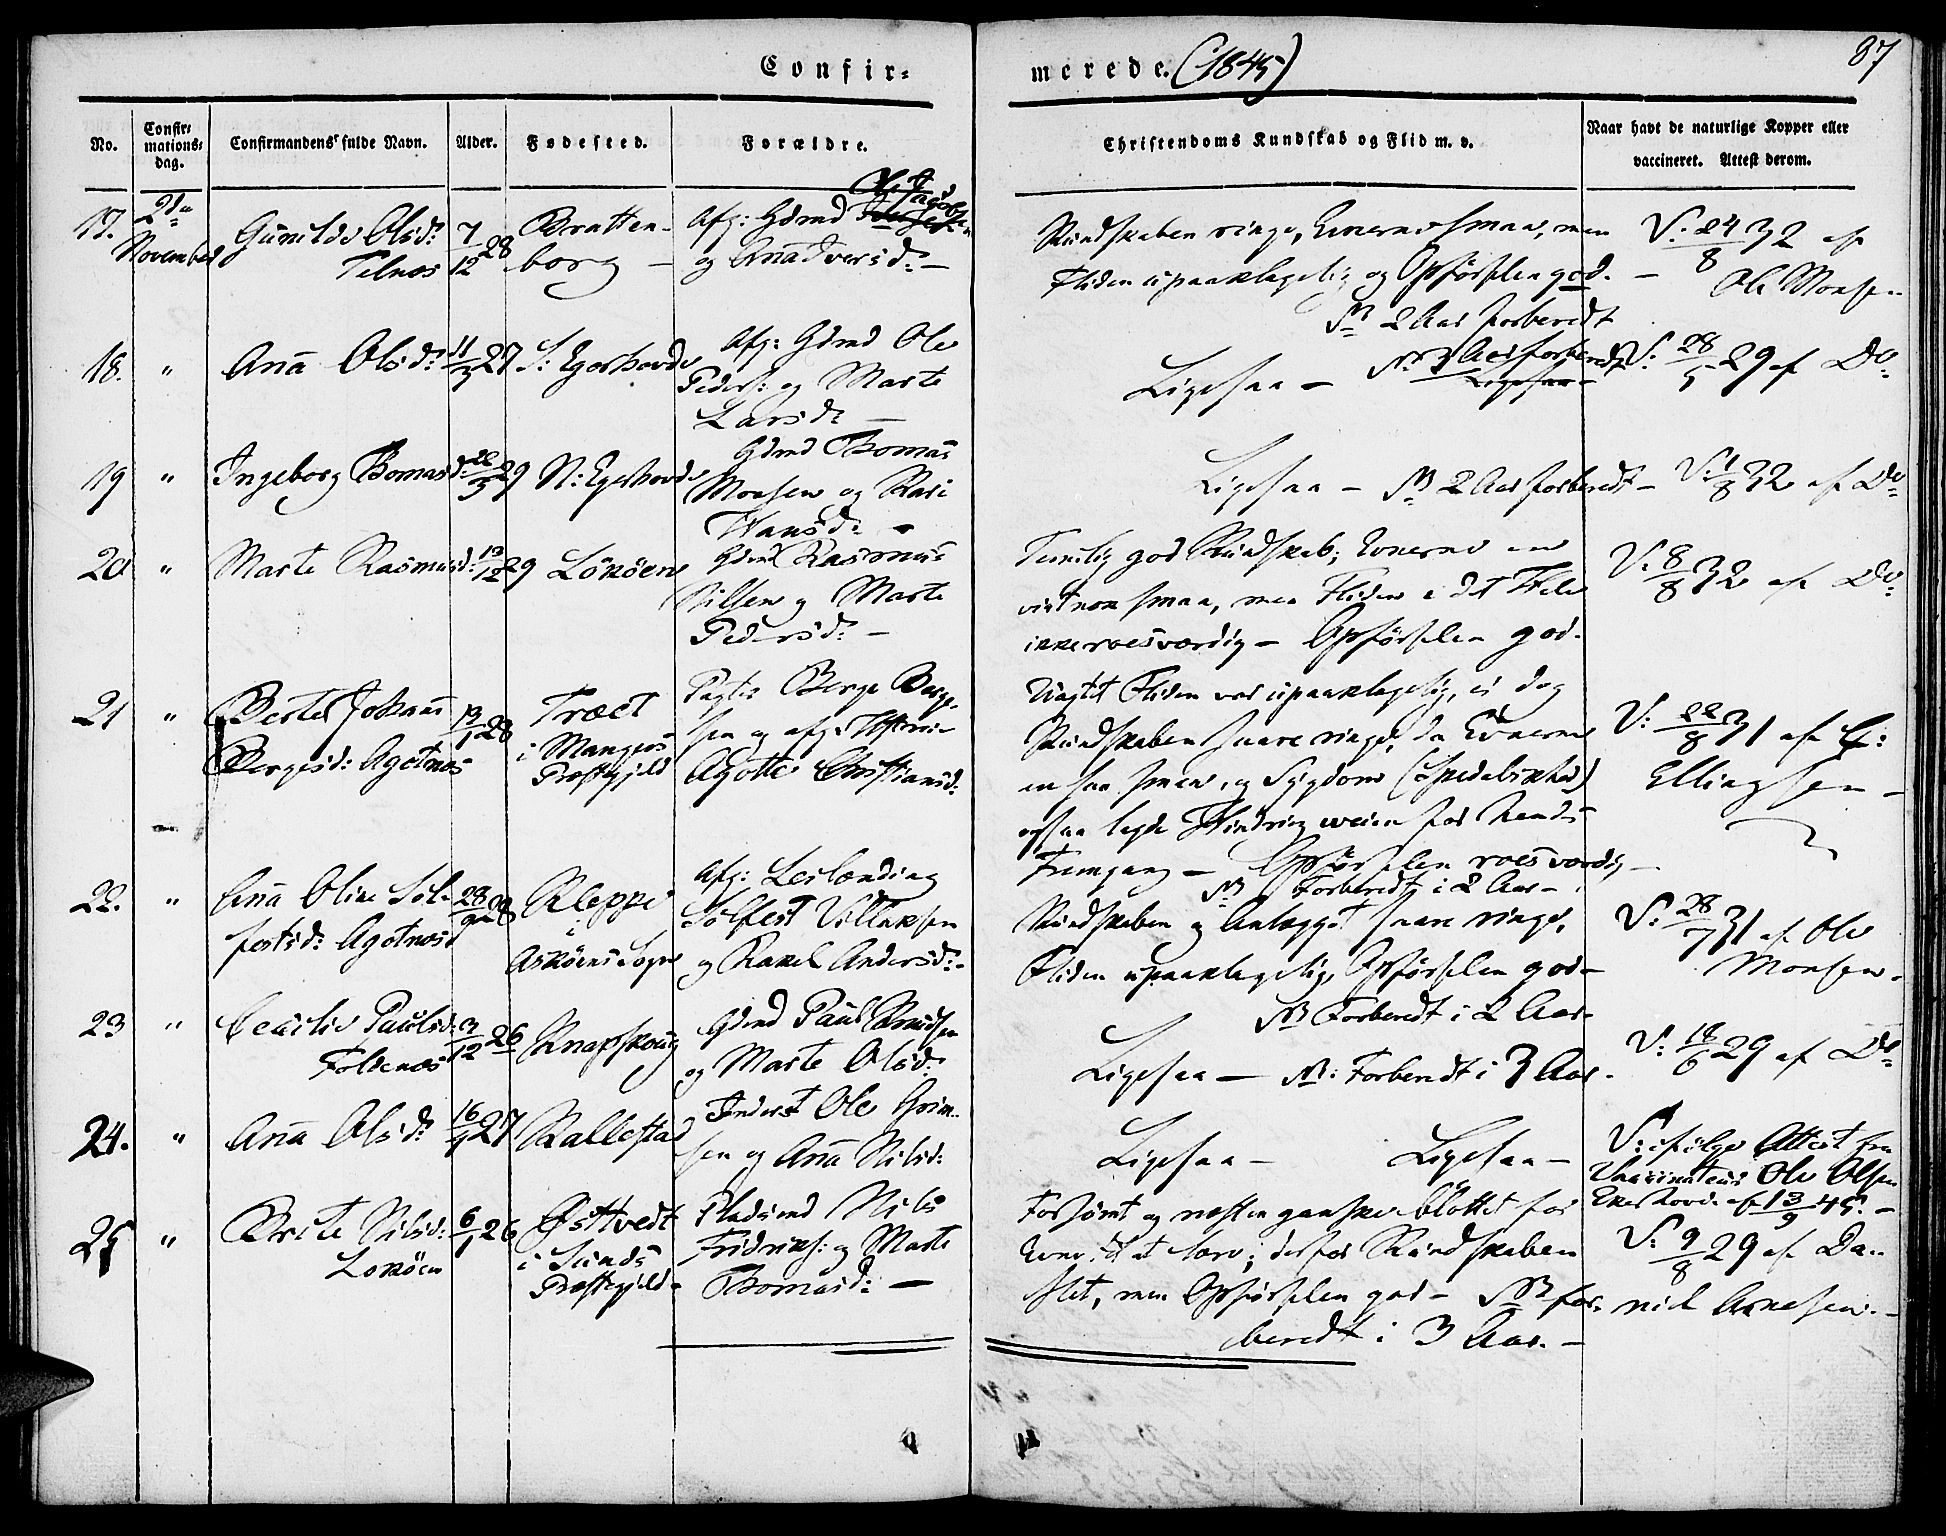 Confir-
merede. (1845)
87
No.
Confir-
mations-
dag.
Confirmandens fulde Navn.
Alder.
Fødested.
Forældre.
Christendoms Kundskab og Flid m. v.
Naar havt de naturlige Kopper eller
vaccineret. Attest derom.
17.
2de
November
Gunilde Olsd:
Telnæs
7/12 28
Bratten-
borg
Afg: Gdmd
og Ana Iversd: —
Kundskaben ringe, Evnerne smaa, men
Fliden upaaklagelig og Opførselen god. —
NB 2 Aar forberedt
V: 24/8 32 af
Ole Monsen
18.
"
Ana Olsd:
27
S: Egeshovde
Afg: Gdmd Ole
Peders: og Marte
Larsd: —
Ligesaa —
NB 3 Aar forberedt
Ligesaa
V: 28/5 29 af Do
19
"
Ingeborg Thomasd:
29
N: Egeshovde
Gdmd Thomas
Monsen og Kari
Hansd: —
Ligesaa — NB 2 Aar forberedt —
V: 1/8 32 af Do
20
"
Marte Rasmusd:
13/12 29
Lokøen
Gdmd Rasmus
Nilsen og Marte
Pedersd: —
Temlig god Kundskab; Evnerne ere
vistnok smaa, men Fliden i det Hele
ikke roesværdig — Opførselen god.
V: 8/8 32 af Do
21
"
Berte Johana
Bergesd: Agotnæs
13/1 28
Træet
i Mangers
Præstegjeld
Pagter Berge Berge-
sen og afg:
Agotte Christiansd:
Uagtet Fliden var upaaklagelig, er dog
Kundskaben saare ringe, da Evnerne
ere saa smaa, og Sygdom (Spedalskhed)
ogsaa lagde Hindring iveien for hendes
Fremgang — Opførselen roesværdig —
NB Forberedt i 2 Aar —
V: 22/8 31 af E:
Ellingsen —
22.
"
Ana Oline Sol-
festsd: Agotnæs
28/9 28
Kleppe
i
Askøens Sogn
Afg: Leilænding
Solfest Villaksen
og Rakel Andersd: —
Kundskaben og Anlægget saare ringe,
Fliden upaaklagelig, Opførselen god —
NB Forberedt i 2 Aar —
V: 28/7 31 af Ole
Monsen.
23
"
Cecilie Paulsd:
Foldnæs
3/12 26
Knapskoug
Gdmd Paul Knudsen
og Marte Olsd:
Ligesaa — NB: Forberedt i 3 Aar.
V: 18/6 29 af Do
24.
"
Ana Olsd:
27
Kallestad
Inderst Ole Grim-
sen og Ana Nilsd:
Ligesaa — Ligesaa —
V: ifølge Attest fra
Vaccinateur Ole Olsen
Ekerhovd af 13/9 45. —
25
"
Brite Nilsd:
Lokøen
6/1 26
Østtvedt
i Sunds
Præstegjeld —
Pladsmd Nils
Fridriks: og Marte
Thomasd: —
Forsømt og næsten ganske blottet for
Evne til at lære; derfor Kundskaben
slet, men Opførselen god — NB for-
beredt i 3 Aar. —
V: 9/8 29 af Da-
niel Arnesen. —